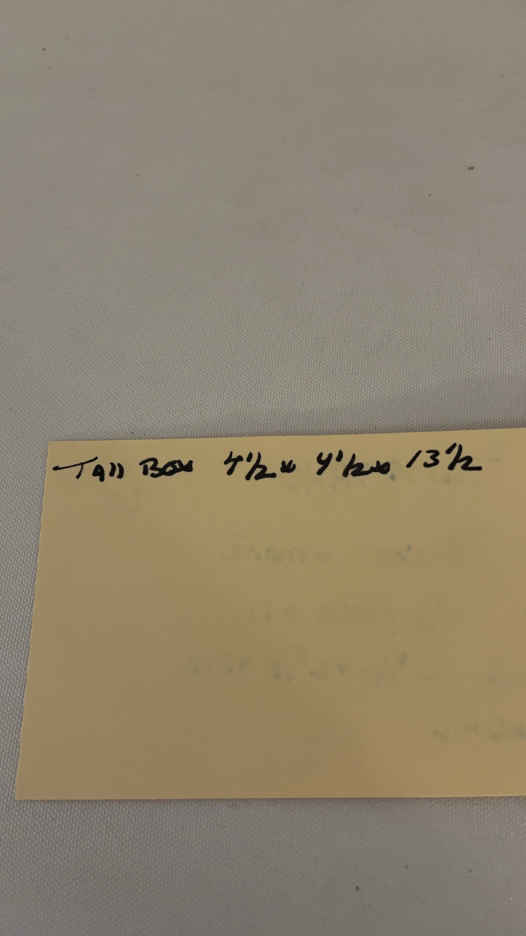 Tall Box 4 1/2 x 4 1/2 x 13 1/2